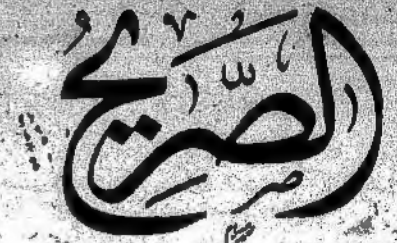 الصَّرِيحُ